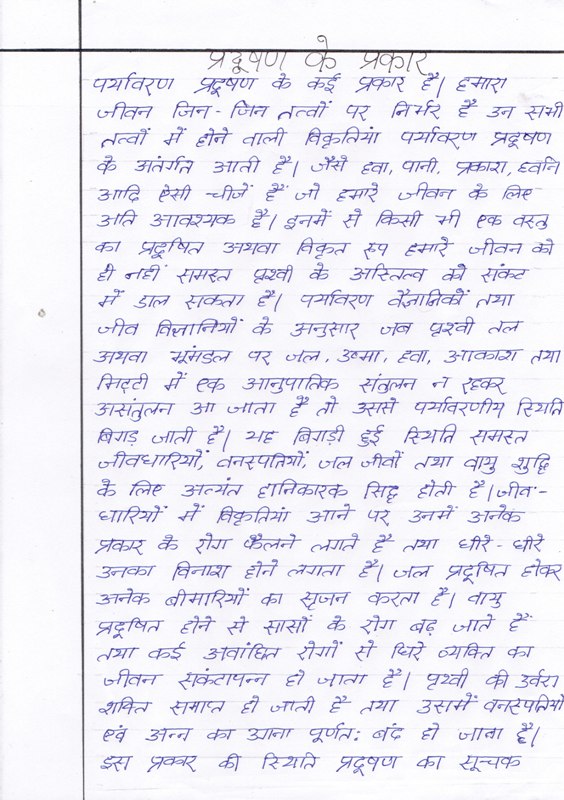 प्रदूषण के प्रकार
पर्यावरण प्रदूषण के कई प्रकार है। हमारा
जीवन जिन-जिन तत्वों पर निर्भर है उन सभी
तत्वों में होने वाली विकृतियां पर्यावरण प्रदूषण
के अंतर्गत आती है। जैसे हवा, पानी, प्रकाश, ध्वनि
आदि ऐसी चीजें हैं जो हमारे जीवन के लिए
अति आवश्यक है। इनमें से किसी भी एक वस्तु
का प्रदूषित अथवा विकृत रूप हमारे जीवन को
ही नहीं समस्त पृथ्वी के अस्तित्व को संकट
में डाल सकता है। पर्यावरण वैज्ञानिकों तथा
जीव विज्ञानियों के अनुसार जब पृथ्वी तल
अथवा भूमंडल पर जल, उष्मा, हवा, आकाश तथा
मिट्टी में एक आनुपातिक संतुलन न रहकर
असंतुलन आ जाता है तो उससे पर्यावरणीय स्थिति
बिगड़ जाती है। यह बिगड़ी हुई स्थिति समस्त
जीवधारियों, वनस्पतियों, जल जीवों तथा वायु शुद्धि
के लिए अत्यंत हानिकारक सिद्ध होती है। जीव-
धारियों में विकृतियां आने पर उनमें अनेक
प्रकार के रोग फैलने लगते है तथा धीरे-धीरे
उनका विनाश होने लगता है। जल प्रदूषित होकर
अनेक बीमारियों का सृजन करता है। वायु
प्रदूषित होने से सासों के रोग बढ़ जाते हैं
तथा कई अवांछित रोगों से घिरे व्यक्ति का
जीवन संकटापन्न हो जाता है। पृथ्वी की उर्वरा
शक्ति समाप्त हो जाती है तथा उसमें वनस्पतियों
एवं अन्न का आना पूर्णतः बंद हो जाता है।
इस प्रकार की स्थिति प्रदूषण का सूचक